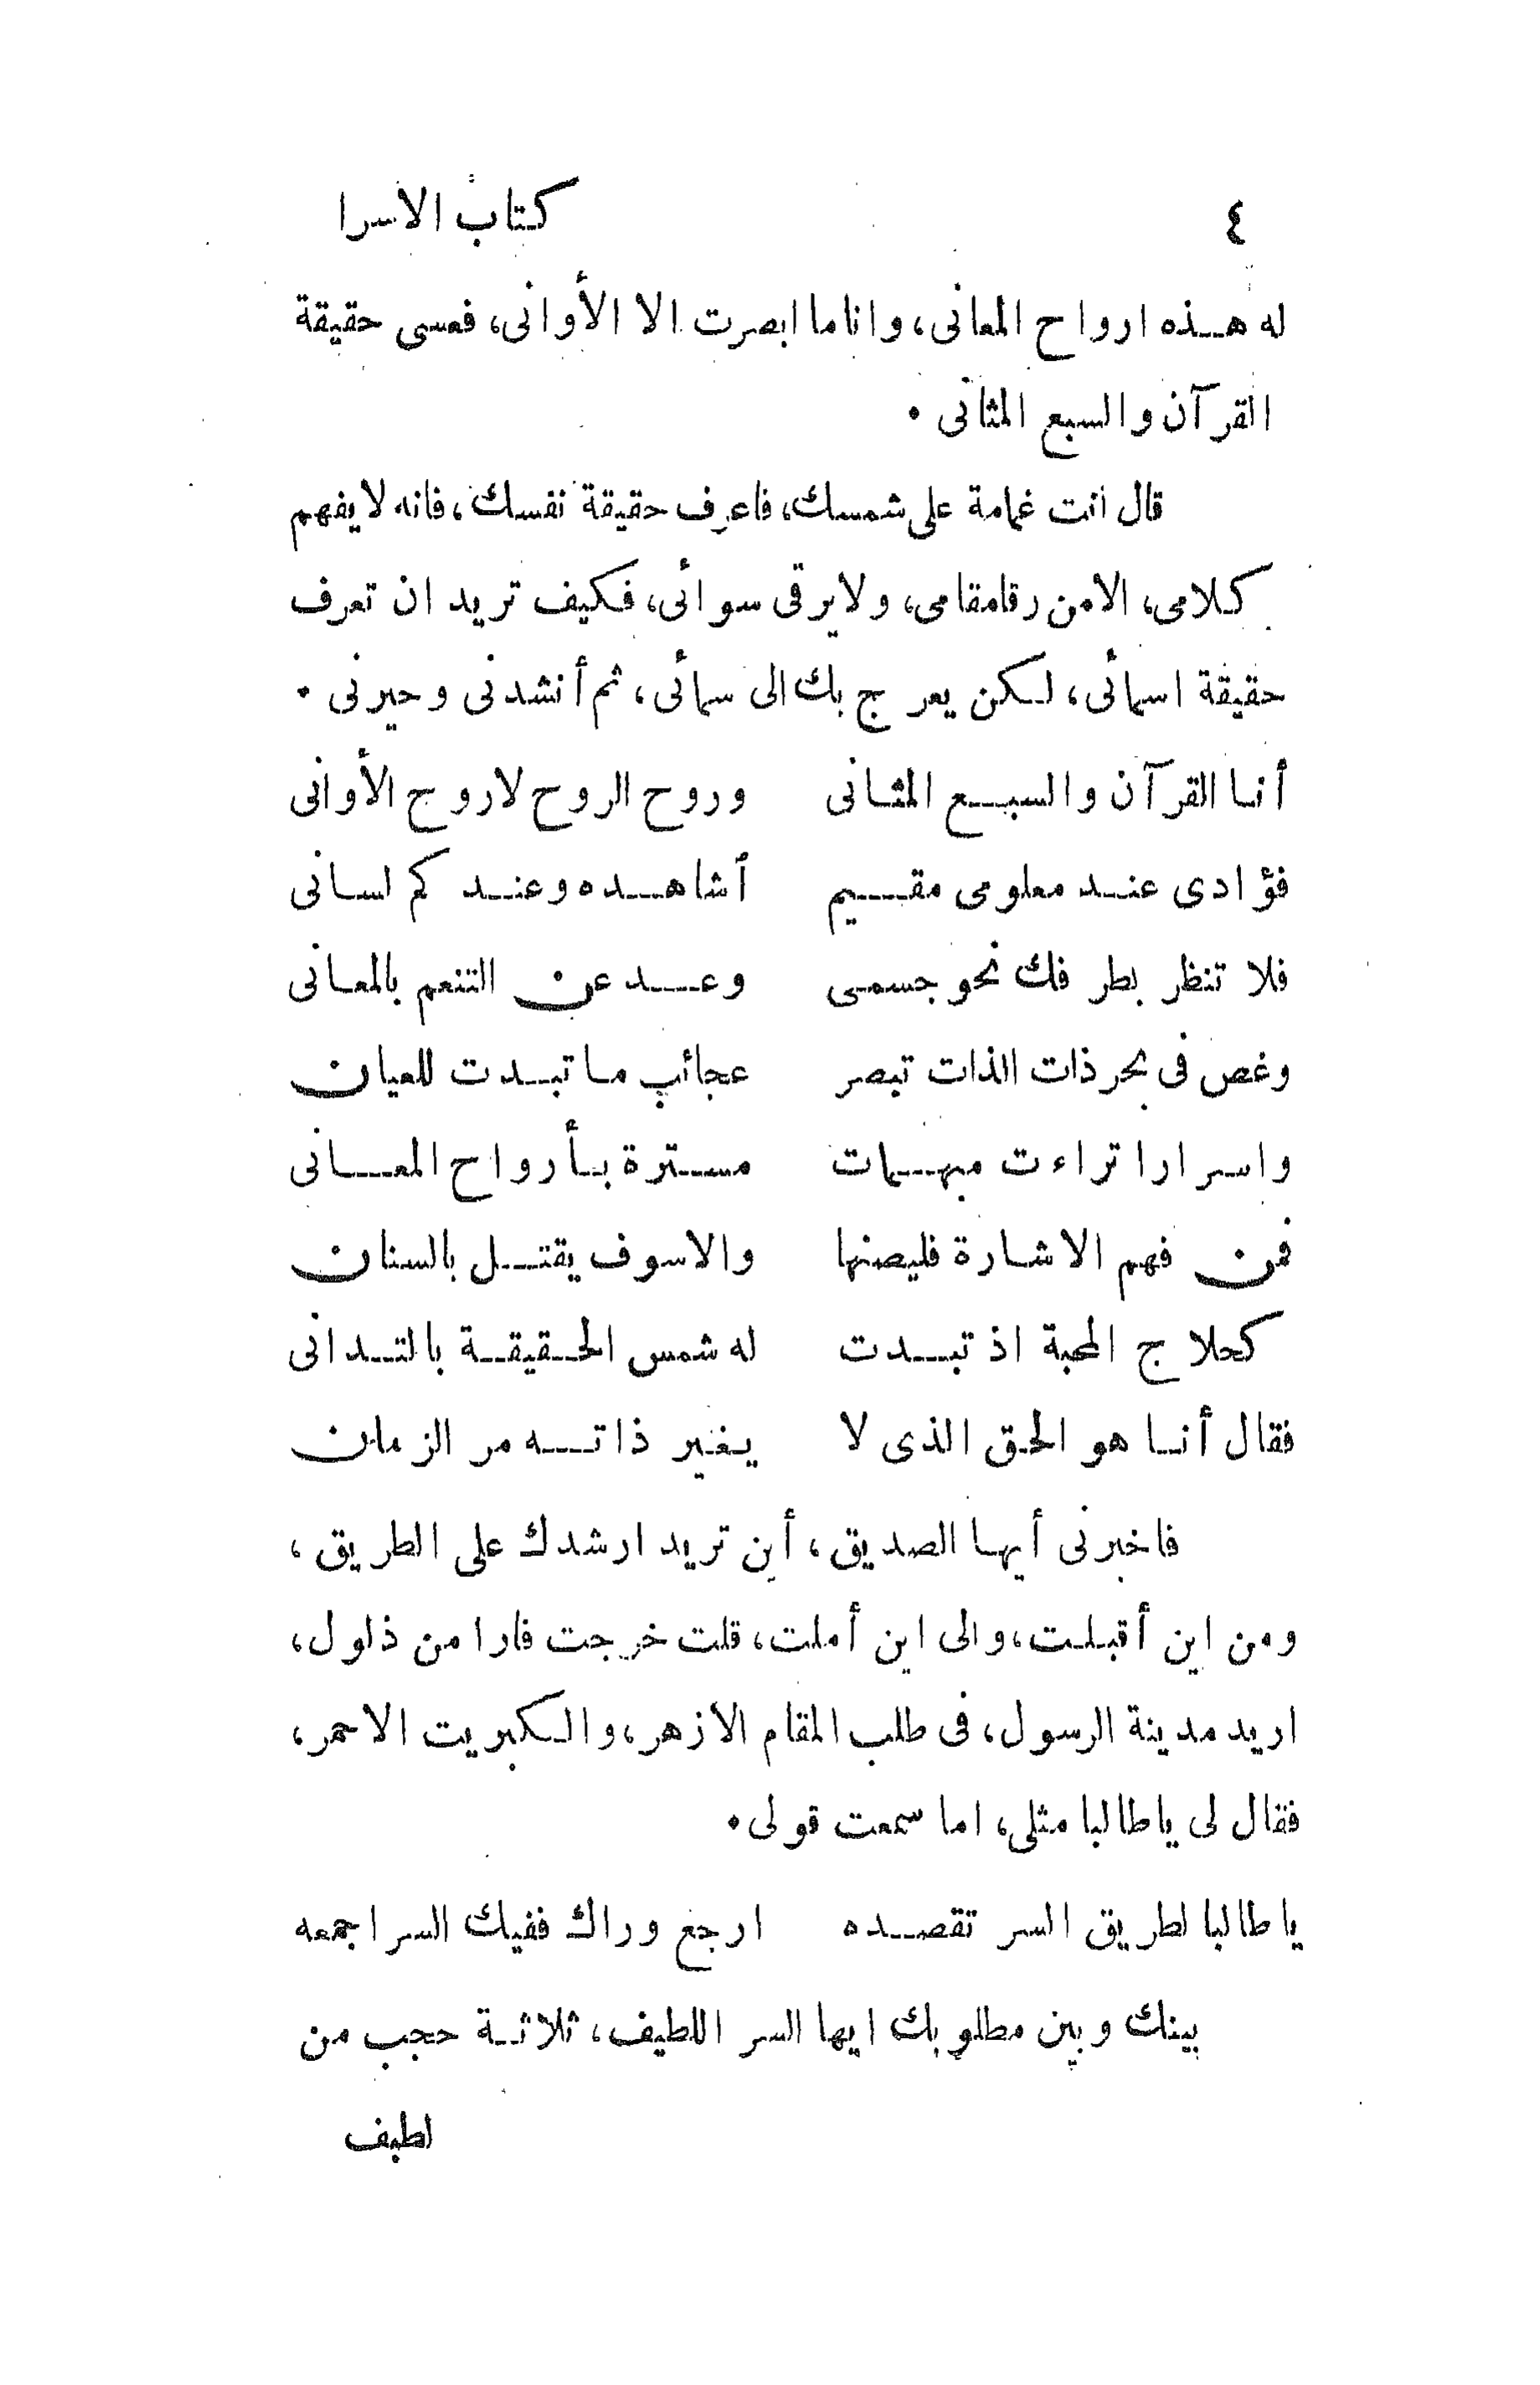 ٤ كتاب الاسرا
له هذه ارواح المعانى، وانا ما ابصرت الا الأوانى، فعسى حقيقة
القرآن والسبع المثانى .
قال أنت غمامة على شمسك، فاعرف حقيقة نفسك، فانه لا يفهم
كلامى، الا من رقا مقامى، ولا يرقى سوائى، فكيف تريد ان تعرف
حقيقة اسمائى، لكن يعرج بك الى سمائى، ثم أنشدنى وحيرنى .
أنا القرآن والسبع المثانى وروح الروح لا روح الأوانى
فؤادى عند معلومى مقيم أشاهده وعندكم لسانى
فلا تنظر بطرفك نحو جسمى وعد عن التنعم بالمعانى
وغص فى بحر ذات الذات تبصر عجائب ما تبدت للعيان
واسرارا تراءت مبهمات مسترة بأرواح المعانى
فمن فهم الاشارة فليصنها والا سوف يقتل بالسنان
كحلاج المحبة اذ تبدت له شمس الحقيقة بالتدانى
فقال أنا هو الحق الذى لا يغير ذاته مر الزمان
فاخبرنى أيها الصديق، أين تريد ارشدك على الطريق،
ومن اين أقبلت، والى اين أملت، قلت خرجت فارا من ذلول،
اريد مدينة الرسول، فى طلب المقام الازهر، والكبريت الاحمر،
فقال لى يا طالبا مثلى، اما سمعت قولى.
يا طالبا لطريق السر تقصده ارجع وراك ففيك السر اجمعه
بينك وبين مطلوبك ايها السر اللطيف، ثلاثة حجب من
لطيف